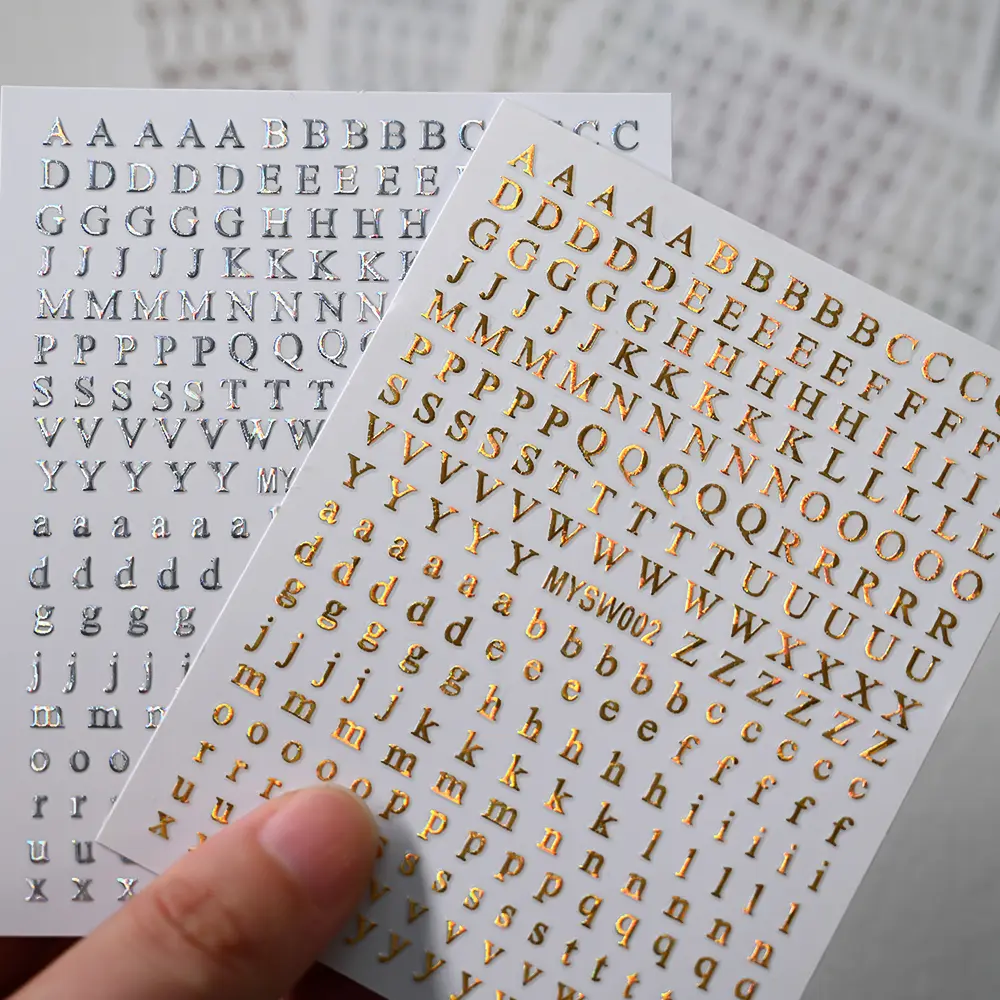 A A A A A B B B B B C C C
D D D D D E E E E E
G G G G G H H H H
J J J J J K K K K
M M M M M N N N N
P P P P P Q Q Q
S S S S S T T T
V V V V V W W
Y Y Y Y Y MY
a a a a a
d d d d d
g g g g
j j j j
m m
o o o
r r
u u
x x x
A A A A A B B B B B C C C
D D D D D E E E E E F F F F
G G G G G H H H H H I I I I
J J J J J K K K K K L L L L L
M M M M M N N N N N O O O O O
P P P P P Q Q Q Q Q R R R R R
S S S S S T T T T T U U U U U
V V V V V W W W W W X X X X X
Y Y Y Y Y MYSW002 Z Z Z Z Z
a a a a a b b b b b c c c c c
d d d d d e e e e e f f f f f
g g g g g h h h h h i i i i i
j j j j j k k k k k l l l l l
m m m m m m n n n n n
o o o o o p p p p p q q q q q
r r r s s s s s t t t
u u v v v v v w
x y y y